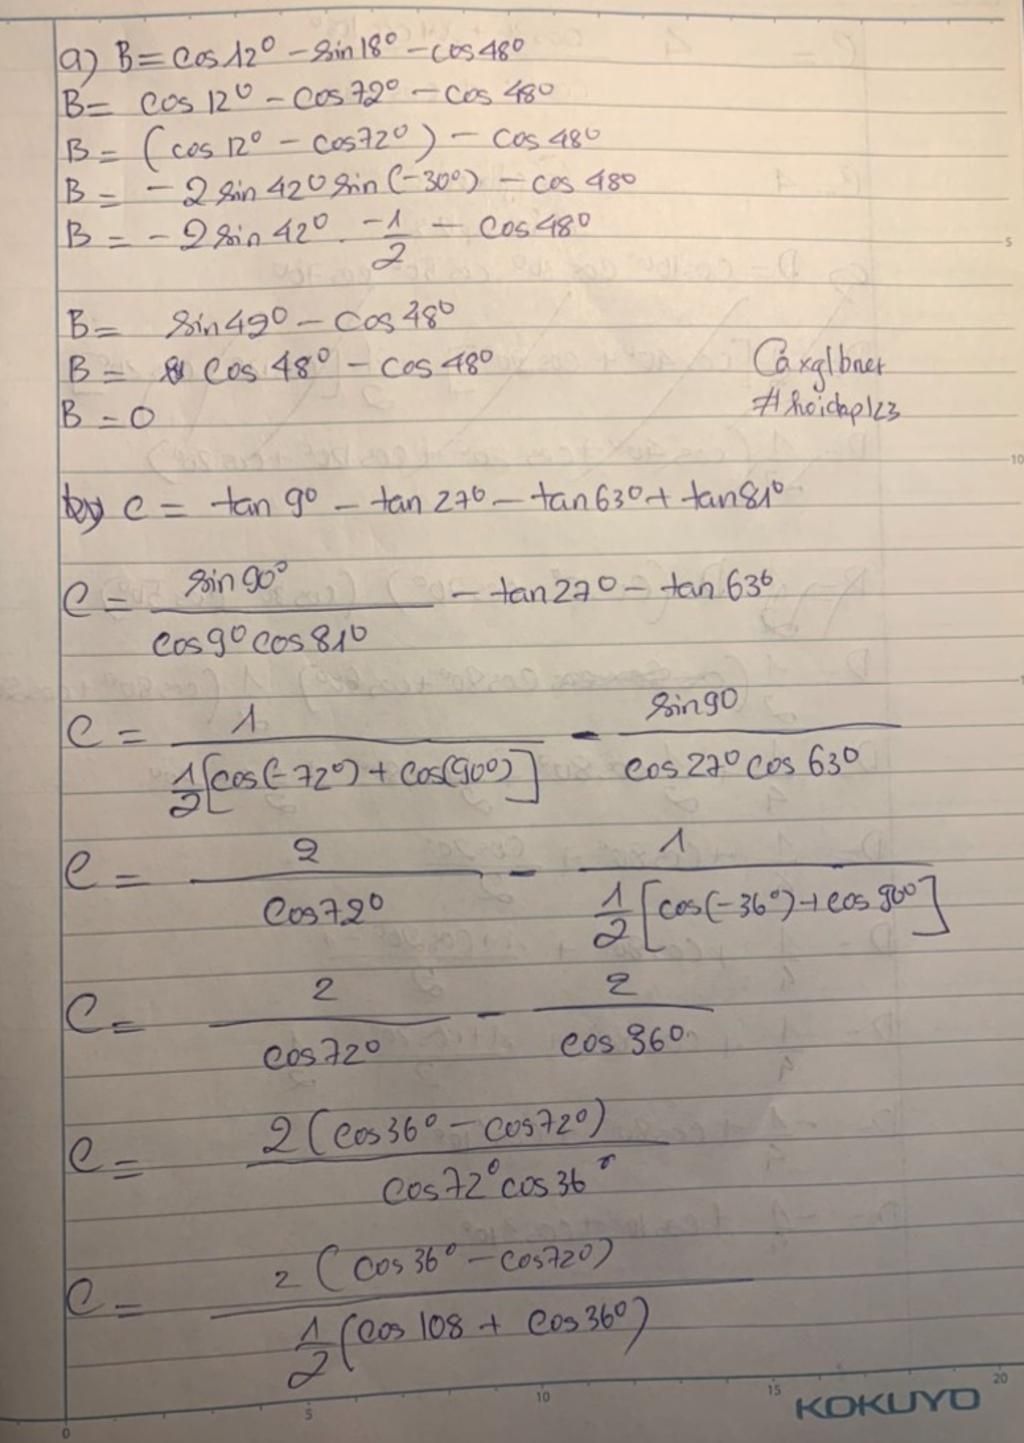 a) B = cos 12° - sin 18° - cos 48°
B = cos 12° - cos 72° - cos 48°
B = (cos 12° - cos 72°) - cos 48°
B = -2 sin 42° sin (-30°) - cos 48°
B = -2 sin 42° . -1/2 - cos 48°
B = sin 42° - cos 48°
B = cos 48° - cos 48°
B = 0
Caxglbner
#hoidap123
b) C = tan 9° - tan 27° - tan 63° + tan 81°
C = sin 90° / cos 9° cos 81° - tan 27° - tan 63°
C = 1 / 1/2 [cos(-72°) + cos(90°)] - sin 90 / cos 27° cos 63°
C = 2 / cos 72° - 1 / 1/2 [cos(-36°) + cos 90°]
C = 2 / cos 72° - 2 / cos 36°
C = 2 (cos 36° - cos 72°) / cos 72° cos 36°
C = 2 (cos 36° - cos 72°) / 1/2 (cos 108 + cos 36°)
5
10
0
5
10
15
20
KOKUYO